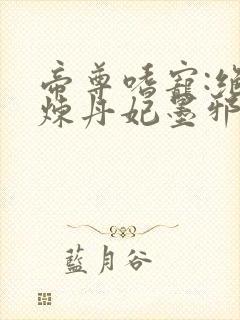 帝尊嗜寵:絕
煉丹妃墨邪
藍月谷